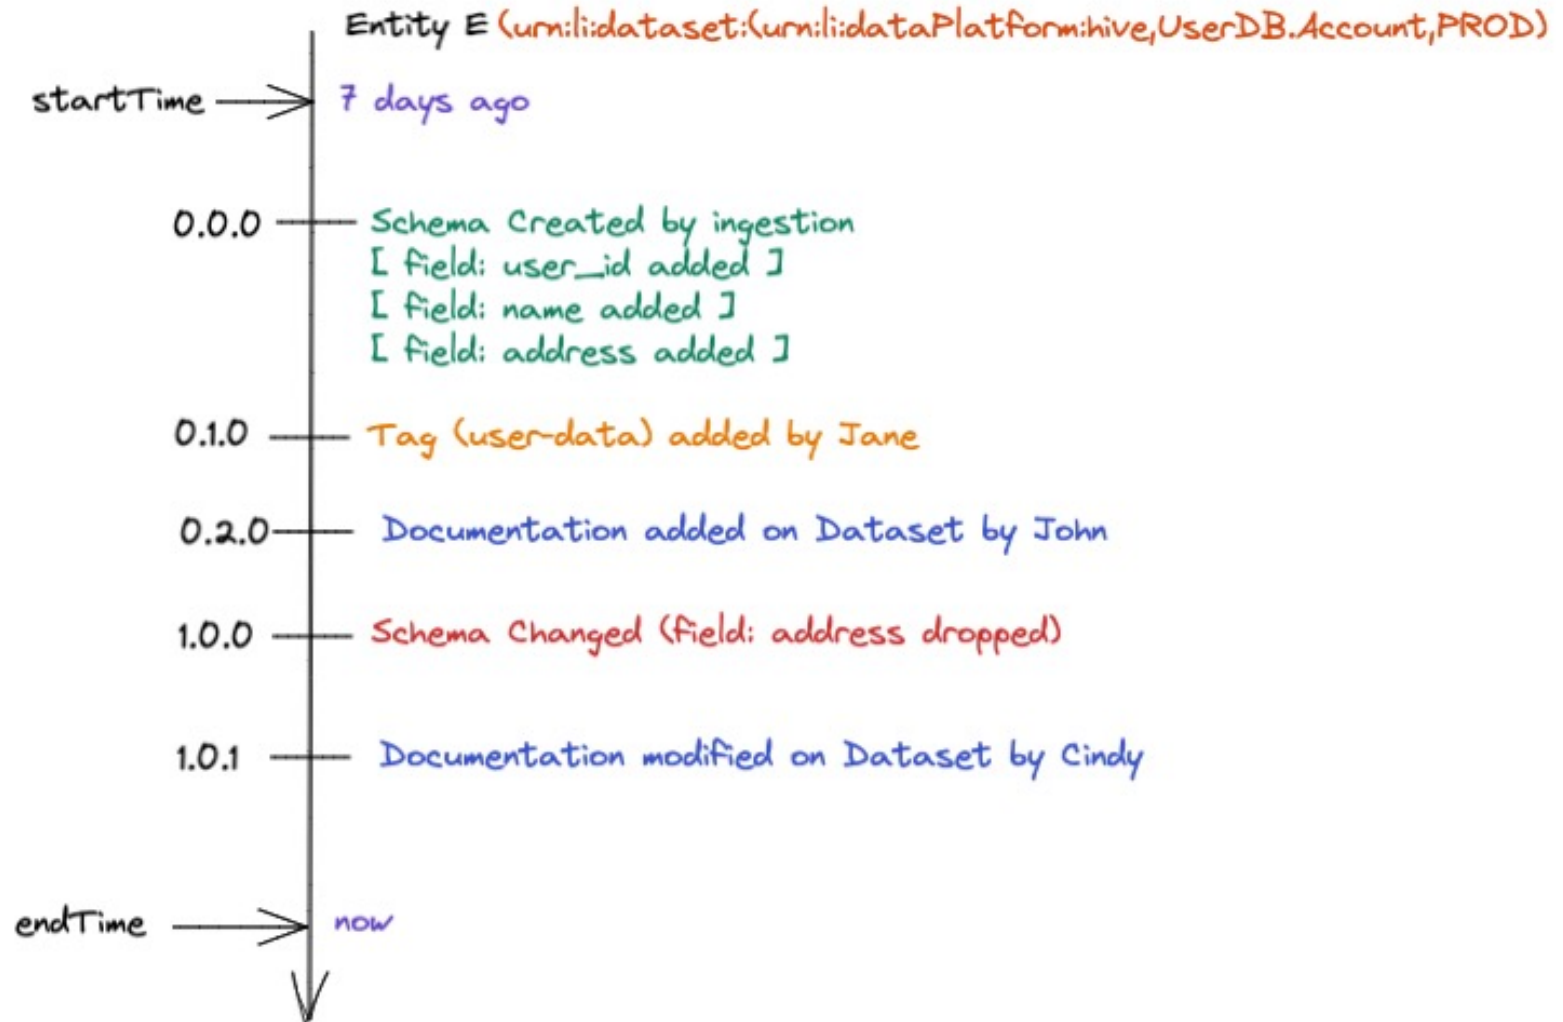 Entity E (urn:li:dataset:(urn:li:dataPlatform:hive,UserDB.Account,PROD)
startTime 7 days ago
0.0.0 Schema Created by ingestion
[ field: user_id added ]
[ field: name added ]
[ field: address added ]
0.1.0 Tag (user-data) added by Jane
0.2.0 Documentation added on Dataset by John
1.0.0 Schema Changed (field: address dropped)
1.0.1 Documentation modified on Dataset by Cindy
endTime now